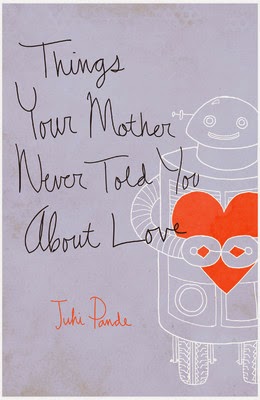 Things
Your Mother
Never Told You
About Love
Juhi Pande